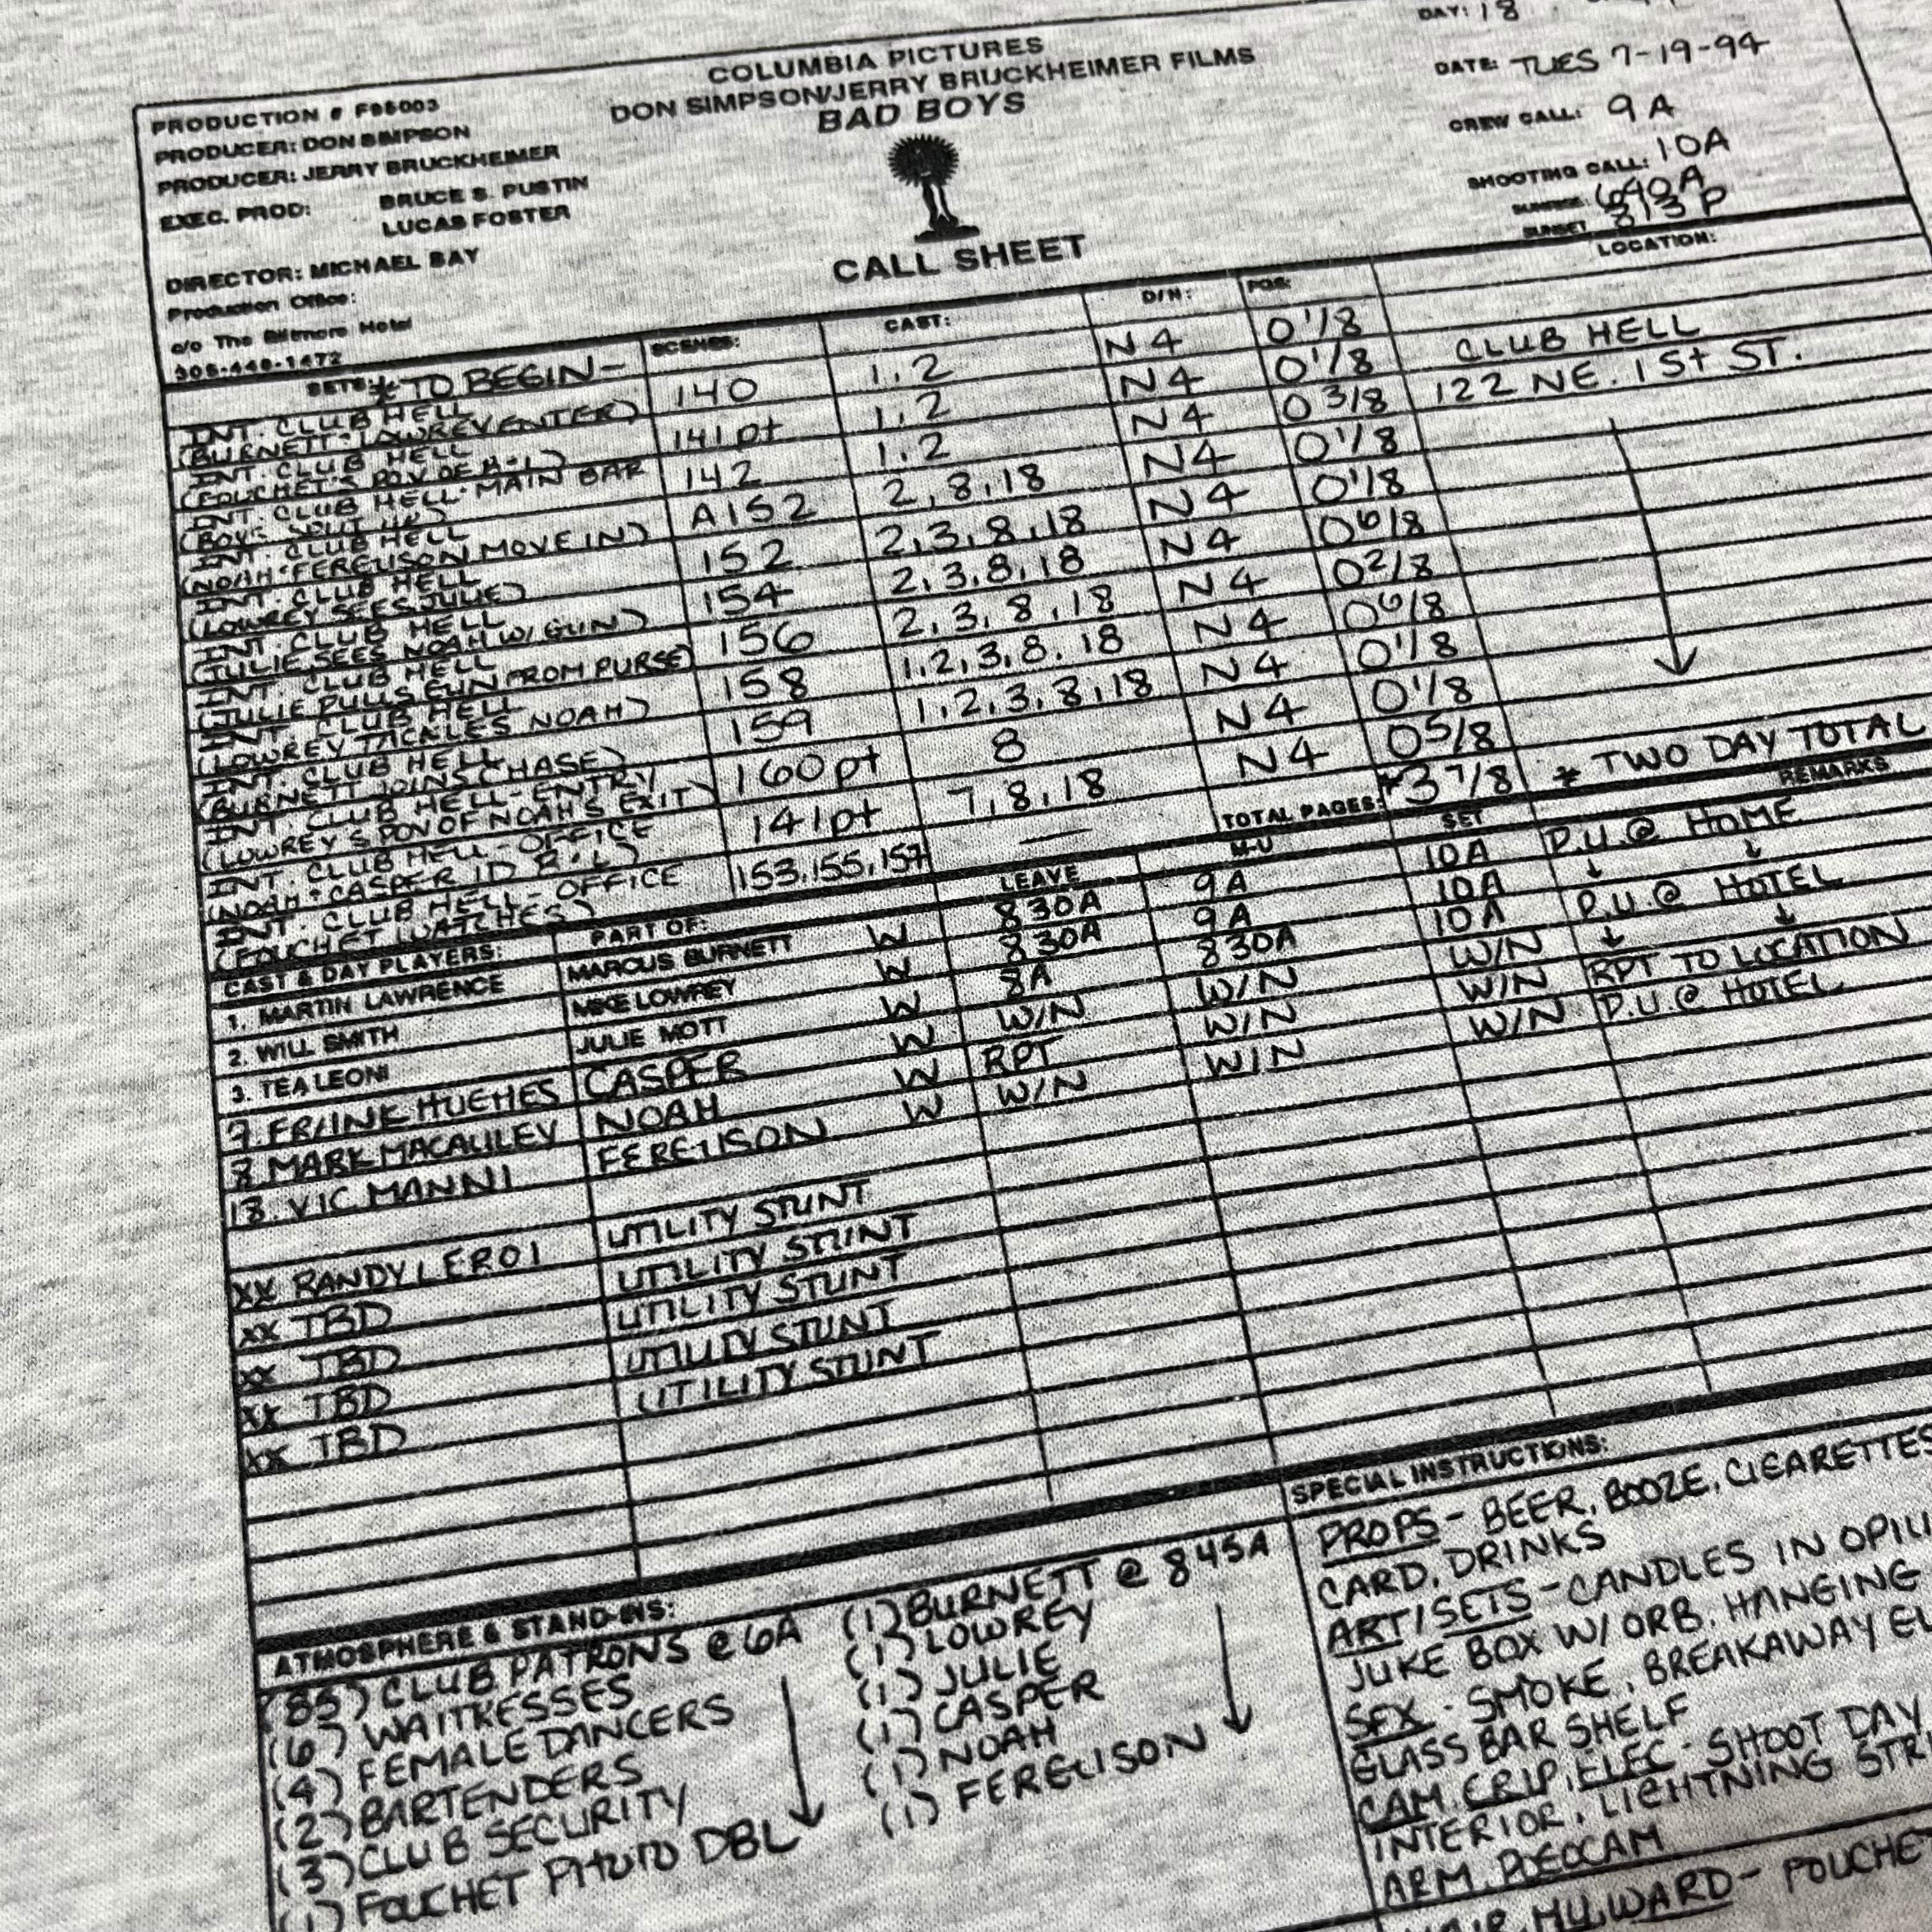 COLUMBIA PICTURES
DON SIMPSON/JERRY BRUCKHEIMER FILMS
BAD BOYS
CALL SHEET
PRODUCTION #
PRODUCER: DON SIMPSON
PRODUCER: JERRY BRUCKHEIMER
EXEC. PROD: BRUCE S. PUSTIN
LUCAS FOSTER
DIRECTOR: MICHAEL BAY
Production Office:
c/o The Biltmore Hotel
DAY: 18
DATE: TUES 7-19-94
CREW CALL: 9A
SHOOTING CALL: 10A
SUNRISE: 640A
SUNSET 813P
SETS: * TO BEGIN- SCENES: CAST: D/N: PGS: LOCATION:
INT. CLUB HELL
(BURNETT·LOWREY ENTER) 140 1,2 N4 0 1/8 CLUB HELL
INT. CLUB HELL
(FOUCHET'S POV OF) 141pt 1,2 N4 0 1/8 122 NE. 1st ST.
INT. CLUB HELL·MAIN BAR
(BOYS SPLIT UP) 142 1,2 N4 0 3/8
INT. CLUB HELL
(NOAH·FERGUSON MOVE IN) A152 2,8,18 N4 0 1/8
INT. CLUB HELL
(LOWREY SEES JULIE) 152 2,3,8,18 N4 0 1/8
INT. CLUB HELL
(JULIE SEES NOAH W/GUN) 154 2,3,8,18 N4 0 6/8
INT. CLUB HELL
(JULIE PULLS GUN FROM PURSE) 156 2,3,8,18 N4 0 2/8
INT. CLUB HELL
(LOWREY TACKLES NOAH) 158 1,2,3,8,18 N4 0 6/8
INT. CLUB HELL
(BURNETT JOINS CHASE) 159 1,2,3,8,18 N4 0 1/8
INT. CLUB HELL-ENTRY
(LOWREY'S POV OF NOAH'S EXIT) 160pt 8 N4 0 1/8
INT. CLUB HELL-OFFICE
(NOAH·CASPER ID B·L) 141pt 7,8,18 N4 0 5/8
INT. CLUB HELL-OFFICE
(FOUCHET WATCHES) 153,155,157 — TOTAL PAGES: *3 7/8 * TWO DAY TOTAL
CAST & DAY PLAYERS: PART OF: LEAVE M-U SET REMARKS
1. MARTIN LAWRENCE MARCUS BURNETT W 830A 9A 10A P.U.@ HOME
2. WILL SMITH MIKE LOWREY W 830A 9A 10A
3. TEA LEONI JULIE MOTT W 8A 830A 10A P.U.@ HOTEL
7. FRANK HUGHES CASPER W W/N W/N W/N
8. MARK MACAULEY NOAH W RPT W/N W/N RPT TO LOCATION
18. VIC MANNI FERGUSON W W/N W/N W/N P.U.@ HOTEL
XX RANDY LEROI UTILITY STUNT
XX TBD UTILITY STUNT
XX TBD UTILITY STUNT
XX TBD UTILITY STUNT
XX TBD UTILITY STUNT
ATMOSPHERE & STAND-INS:
(85) CLUB PATRONS @ 6A
(6) WAITRESSES
(4) FEMALE DANCERS
(2) BARTENDERS
(3) CLUB SECURITY
(1) FOUCHET PHOTO DBL
(1) BURNETT @ 845A
(1) LOWREY
(1) JULIE
(1) CASPER
(1) NOAH
(1) FERGUSON
SPECIAL INSTRUCTIONS:
PROPS- BEER, BOOZE, CIGARETTES
CARD, DRINKS
ART/SETS-CANDLES IN
JUKE BOX W/ ORB, HANGING
SFX - SMOKE, BREAKAWAY
GLASS BAR SHELF
CAM, GRIP, ELEC- SHOOT DAY
INTERIOR, LIGHTNING
ARM, POGOCAM
HAIR, MU, WARD-